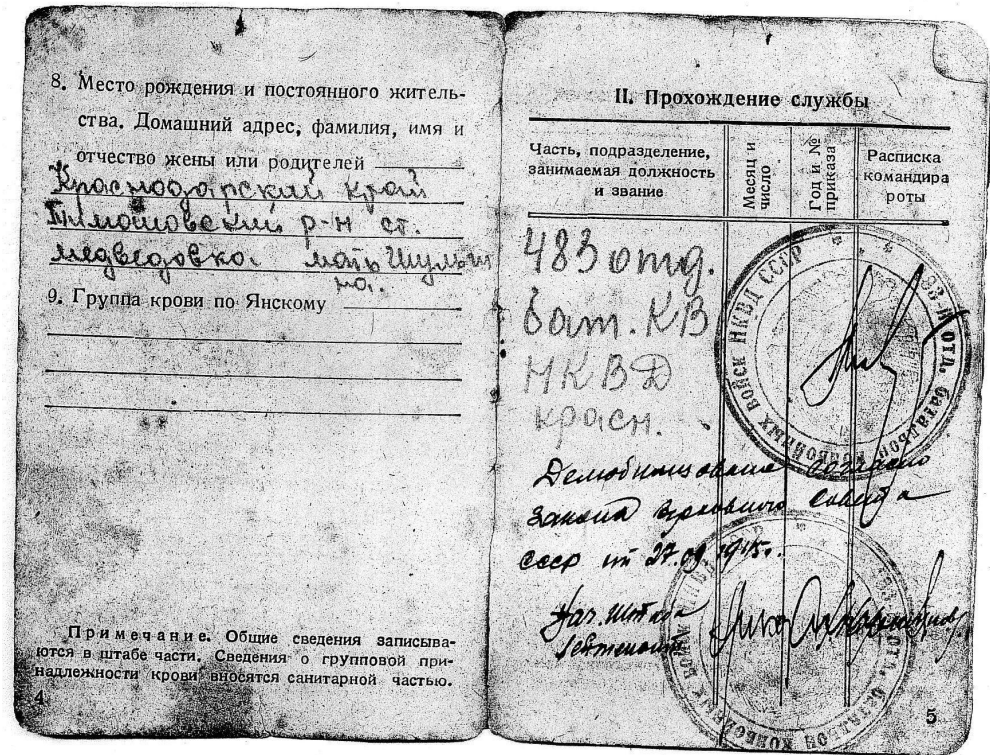 8. Место рождения и постоянного житель-
ства. Домашний адрес, фамилия, имя и
отчество жены или родителей
Краснодарский край
Тимошовский р-н ст.
медведовка. мать Шульги
на.
9. Группа крови по Янскому
Примечание. Общие сведения записыва-
ются в штабе части. Сведения о групповой при-
надлежности крови вносятся санитарной частью.
4
II. Прохождение службы
Часть, подразделение,
занимаемая должность
и звание
Месяц и
число
Год и №
приказа
Расписка
командира
роты
483 отд.
бат. КВ
НКВД
красн.
483-й отд. батальон конвойных войск НКВД СССР
Демобилизована согласно
Закона Верховного Совета
СССР от 27.09.1945г.
Нач. штаба
лейтенант
483 отд. батальон конвойных войск НКВД
5